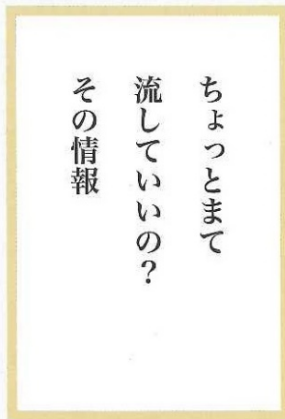 ちょっとまて
流していいの?
その情報